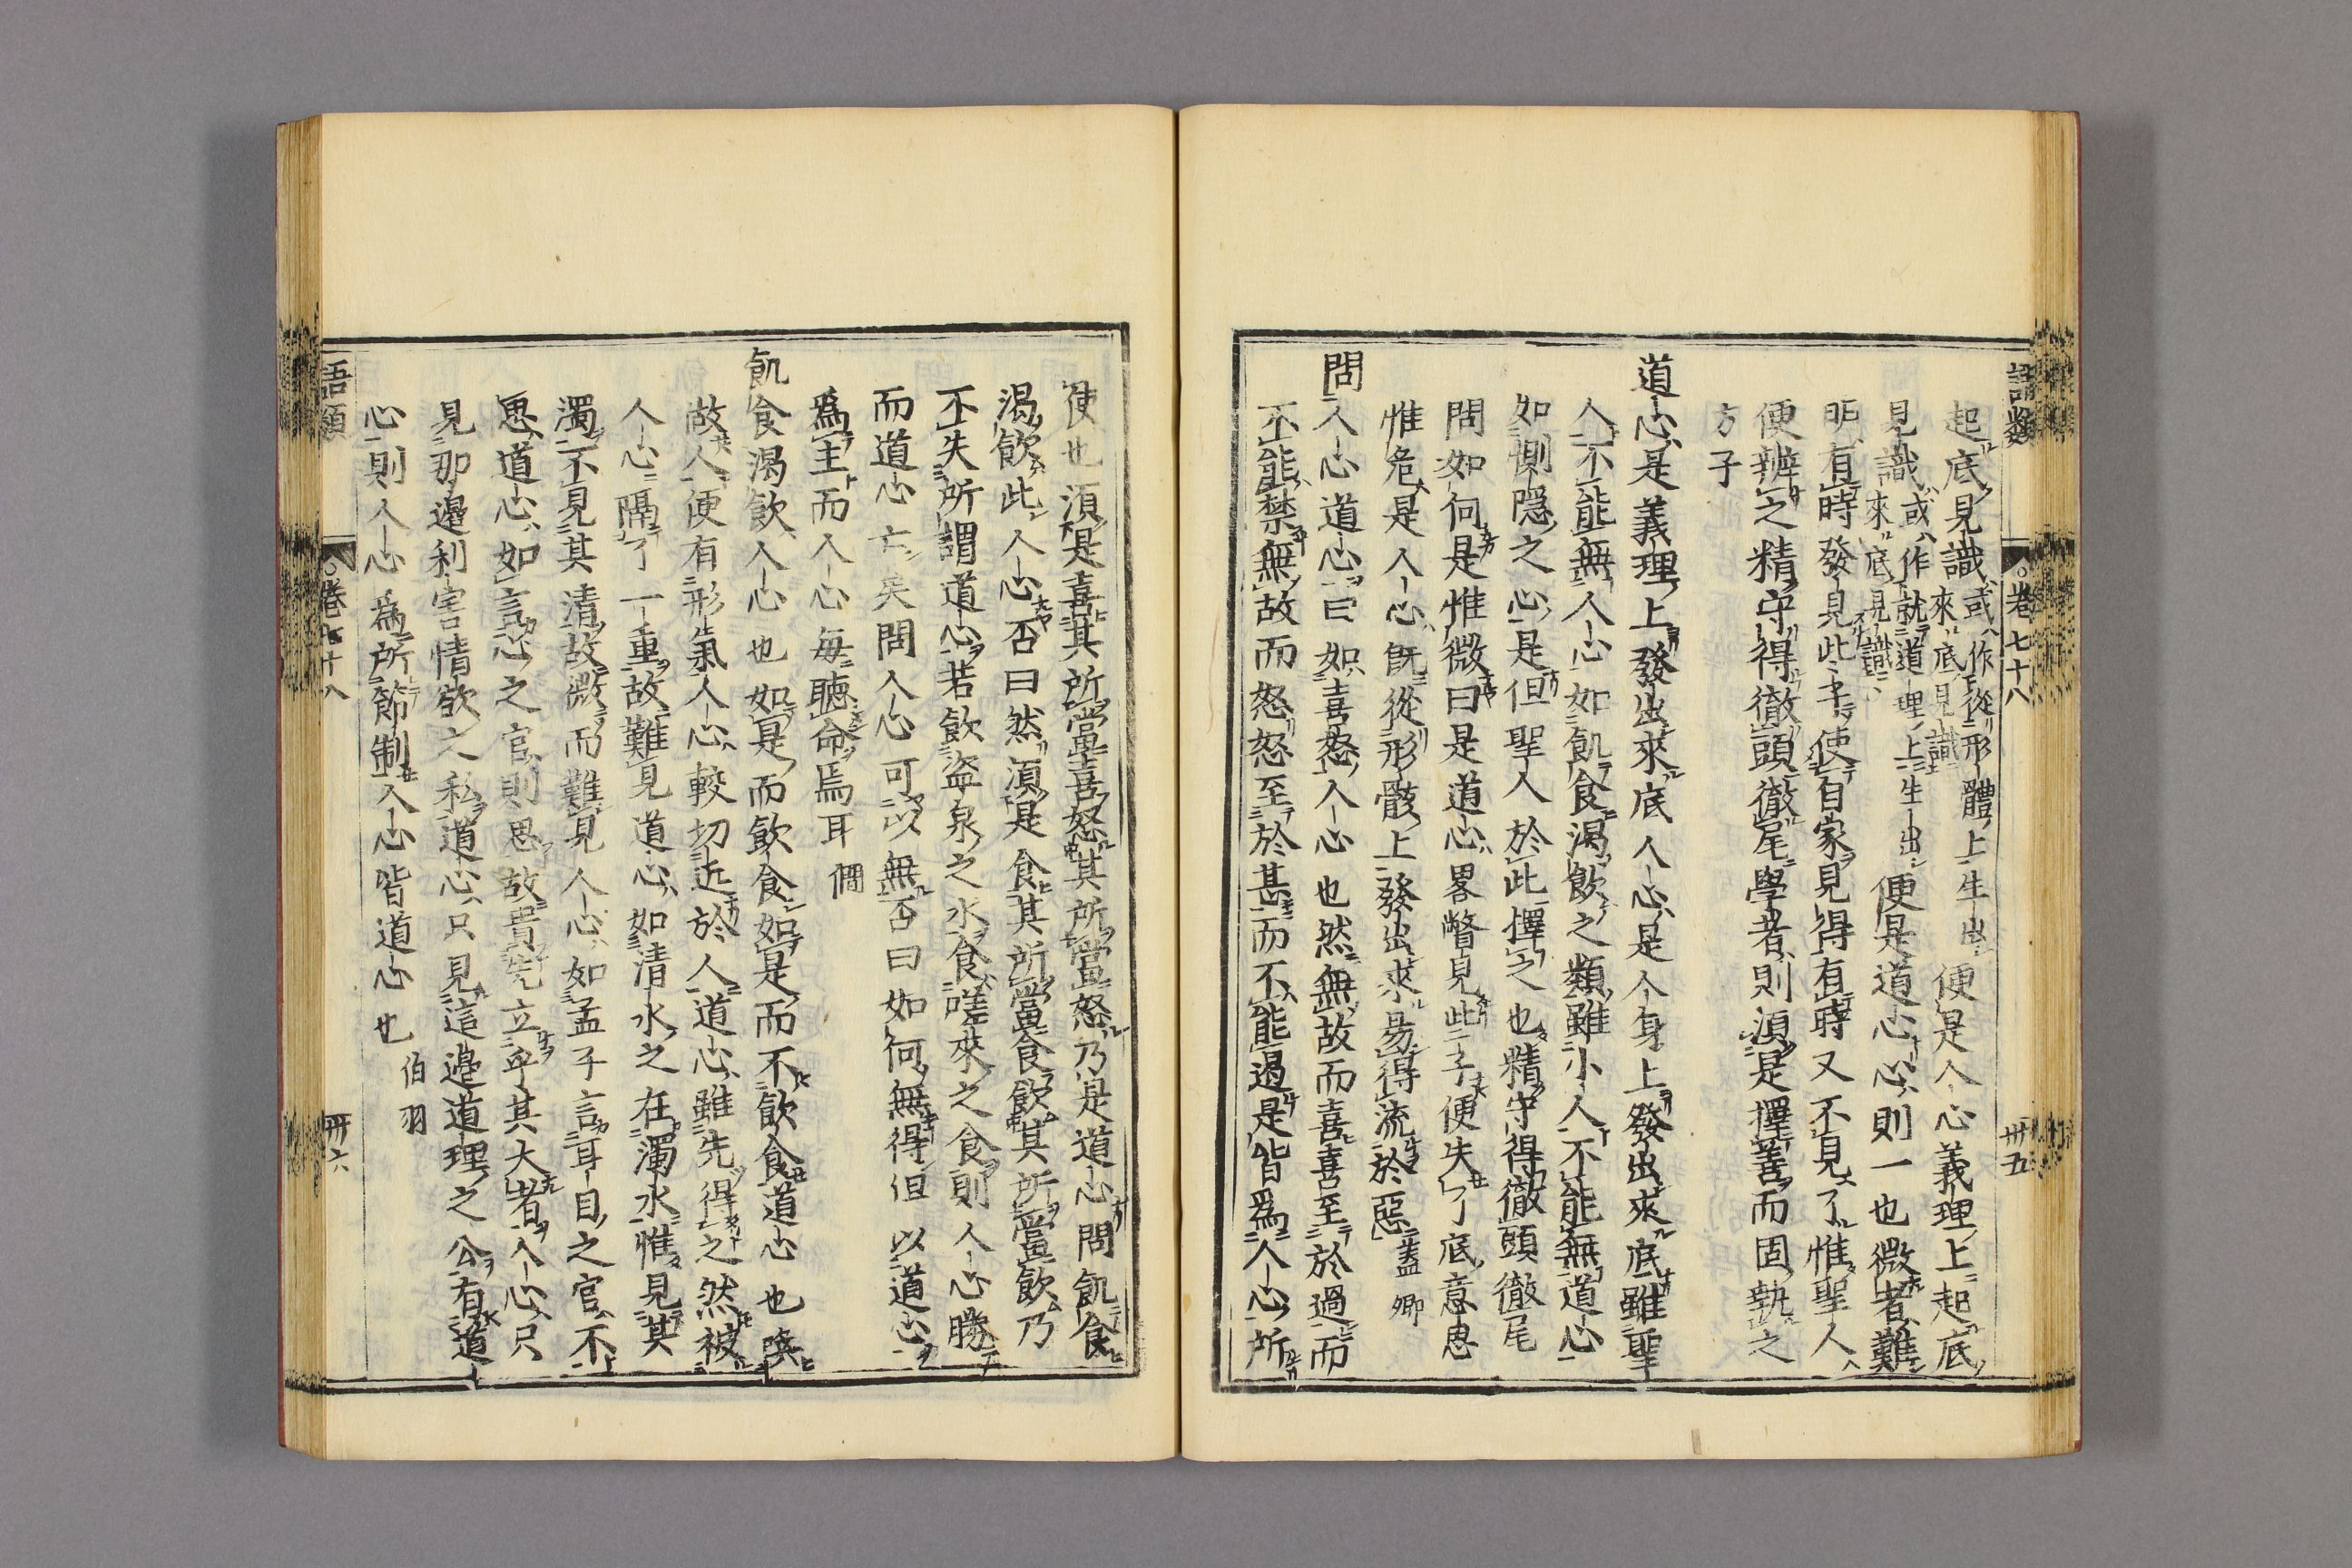 語類
卷七十八
卅五
起底見識或作從形體上生出來底見識便是人心義理上起底
見識或作就道理上生出來底見識便是道心心則一也微者難
明有時發見此子使自家見得有時又不見了惟聖人
便辨之精守得徹頭徹尾學者則須是擇善而固執之
方子
道心是義理上發出來底人心是人身上發出來底雖聖
人不能無人心如飢食渴飲之類雖小人不能無道心
如惻隱之心是但聖人於此擇之也精守得徹頭徹尾
問如何是惟微曰是道心畧瞥見此子便失了底意思
惟危是人心既從形骸上發出來易得流於惡蓋卿
問人心道心曰如喜怒人心也然無故而喜喜至於過而
不能禁無故而怒怒至於甚而不能遏是皆爲人心所
使也須是喜其所當喜怒其所當怒乃是道心問飢食
渴飲此人心否曰然須是食其所當食飲其所當飲乃
不失所謂道心若飲盜泉之水食嗟來之食則人心勝
而道心亡矣問人心可以無否曰如何無得但以道心
爲主而人心每聽命焉耳僩
飢食渴飲人心也如是而飲食如是而不飲食道心也喚
做人便有形氣人心較切近於人道心雖先得之然被
人心隔了一重故難見道心如清水之在濁水惟見其
濁不見其清故微而難見人心如孟子言耳目之官不
思道心如言心之官則思故貴先立乎其大者人心只
見那邊利害情欲之私道心只見這邊道理之公有道
心則人心爲所節制人心皆道心也伯羽
語類
卷七十八
卅六